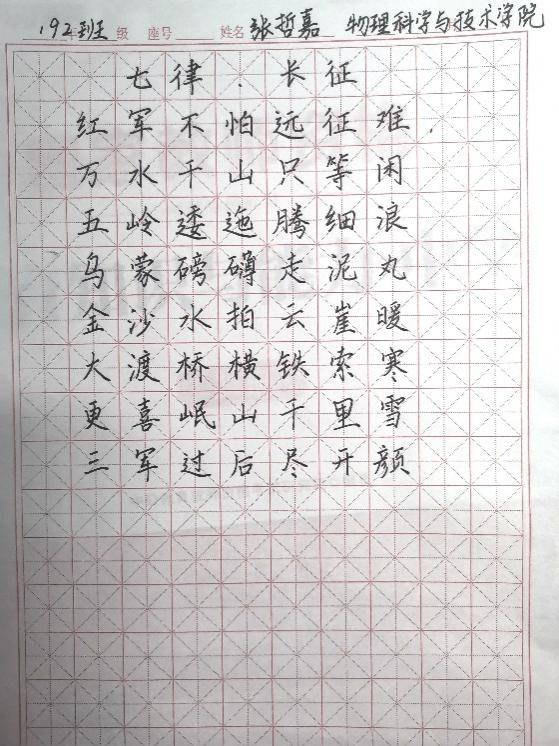 192班 级 座号 姓名 张哲嘉 物理科学与技术学院
七律·长征
红军不怕远征难.
万水千山只等闲
五岭逶迤腾细浪
乌蒙磅礴走泥丸
金沙水拍云崖暖
大渡桥横铁索寒
更喜岷山千里雪
三军过后尽开颜